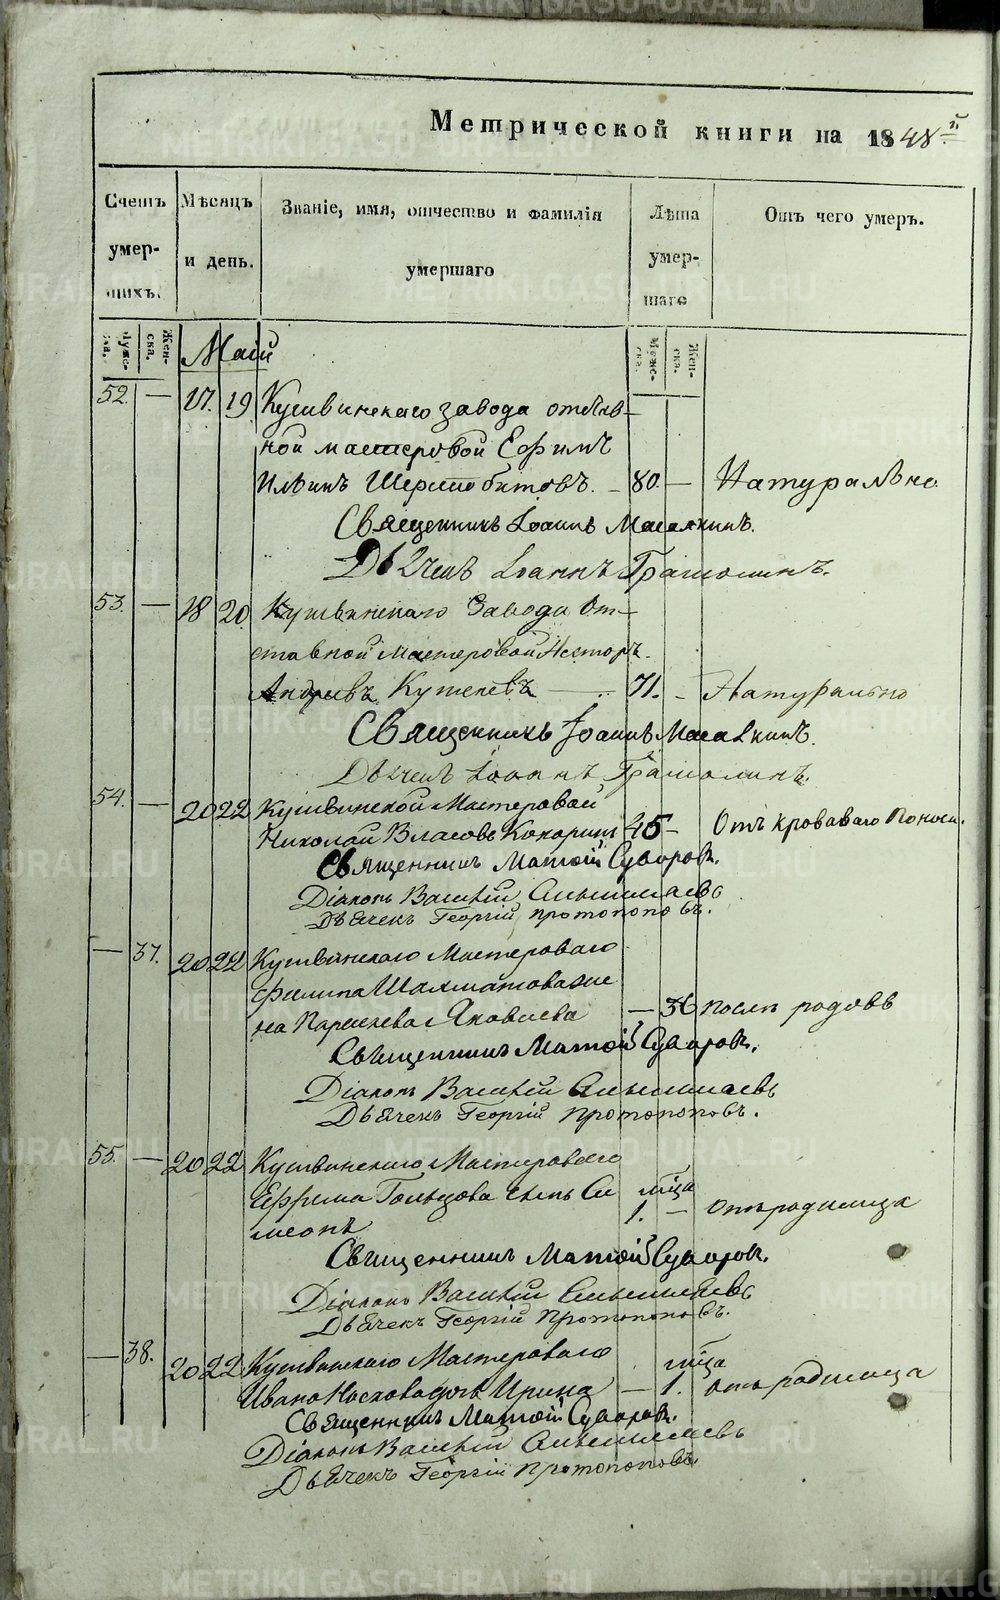 Метрической книги на 1848й
Счетъ умершихъ.
Мѣсяцъ и день.
Званіе, имя, отчество и фамилія умершаго
Лѣта умершаго
Отъ чего умеръ.
Мужеска.
Женска.
Маій
Мужеска.
Женска.
52. — 17. 19 Кушвинскаго завода отстав-
ной мастеровой Ефимъ
Ильинъ — 80. — Натурально
Священникъ Іоаннъ
Дьячекъ Іоаннъ Грамолинъ.
53. — 18 20. Кушвинскаго Завода От-
ставной Мастеровой Несторъ
Андреевъ — 71. - Натурально
Священникъ Іоаннъ
Дьячекъ Іоаннъ Грамолинъ.
54. — 20 22 Кушвинской Мастеровой
Николай Власовъ Кокоринъ 45 — Отъ кроваваго поноса.
Священникъ Матѳій Суворовъ.
Діаконъ Василій
Дьячекъ Георгій Протопоповъ.
— 37. 20 22 Кушвинскаго Мастероваго
Филипа Шахматова же
на Яковлева — 36 послѣ родовъ
Священникъ Матѳій Суворовъ.
Діаконъ Василій
Дьячекъ Георгій Протопоповъ.
55. — 20 22 Кушвинскаго Мастероваго
Ефрема Гольцова сынъ Си мѣца
меонъ 1. — отъ родимца
Священникъ Матѳій Суворовъ.
Діаконъ Василій
Дьячекъ Георгій Протопоповъ.
— 38. 20 22 Кушвинскаго Мастероваго мѣца
Ивана Носкова дочь Ирина — 1. отъ родимца
Священникъ Матѳій Суворовъ.
Діаконъ Василій
Дьячекъ Георгій Протопоповъ
METRIKI.GASO-URAL.RU